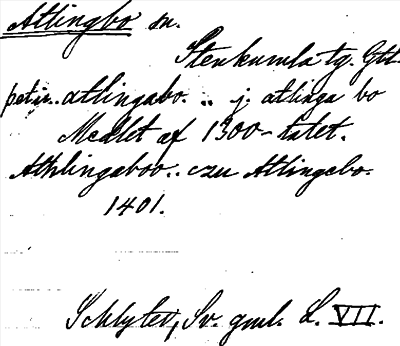 Atlingbo sn.
Stenkumla tg. Gtl.
petir.. atlingabo. .. j. atlinga bo
Medlet af 1300-talet.
Athlingaboo.. czu Atlingebo.
1401.
Schlyter, Sv. gml. L. VII.